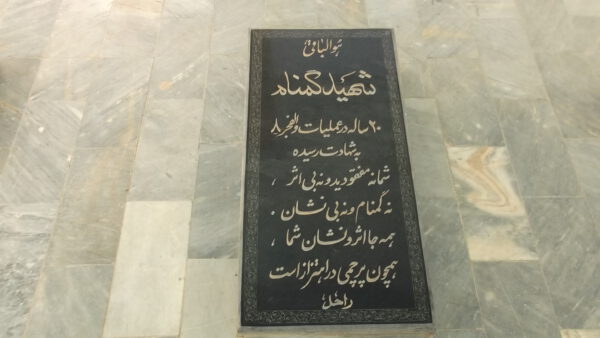 هوالباقی
شهید گمنام
۲۰ ساله در عملیات والفجر ۸
به شهادت رسیده
شما نه مفقودید و نه بی اثر ،
نه گمنام و نه بی نشان .
همه جا اثر و نشان شما ،
همچون پرچمی در اهتزاز است